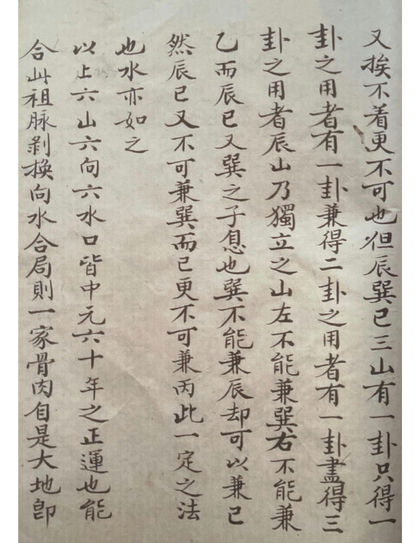 又挨不着更不可也但辰巽巳三山有一卦只得一
卦之用者有一卦兼得二卦之用者有一卦盡得三
卦之用者辰山乃獨立之山左不能兼巽右不能兼
乙而辰巳又巽之子息也巽不能兼辰却可以兼巳
然辰巳又不可兼巽而巳更不可兼丙此一定之法
也水亦如之
以上六山六向六水口皆中元六十年之正運也能
合此祖脉剥換向水合局則一家骨肉自是大地卽